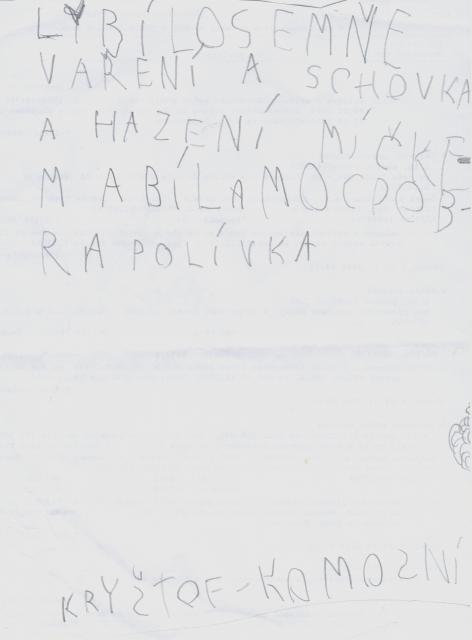 LÝBÍLOSEMNĚ
VAŘENÍ A SCHOVKA
A HÁZENÍ MÍČKE-
M A BÍLA MOC DOB-
RA POLÍVKA
KRYŠTOF-KOMOSNÍ